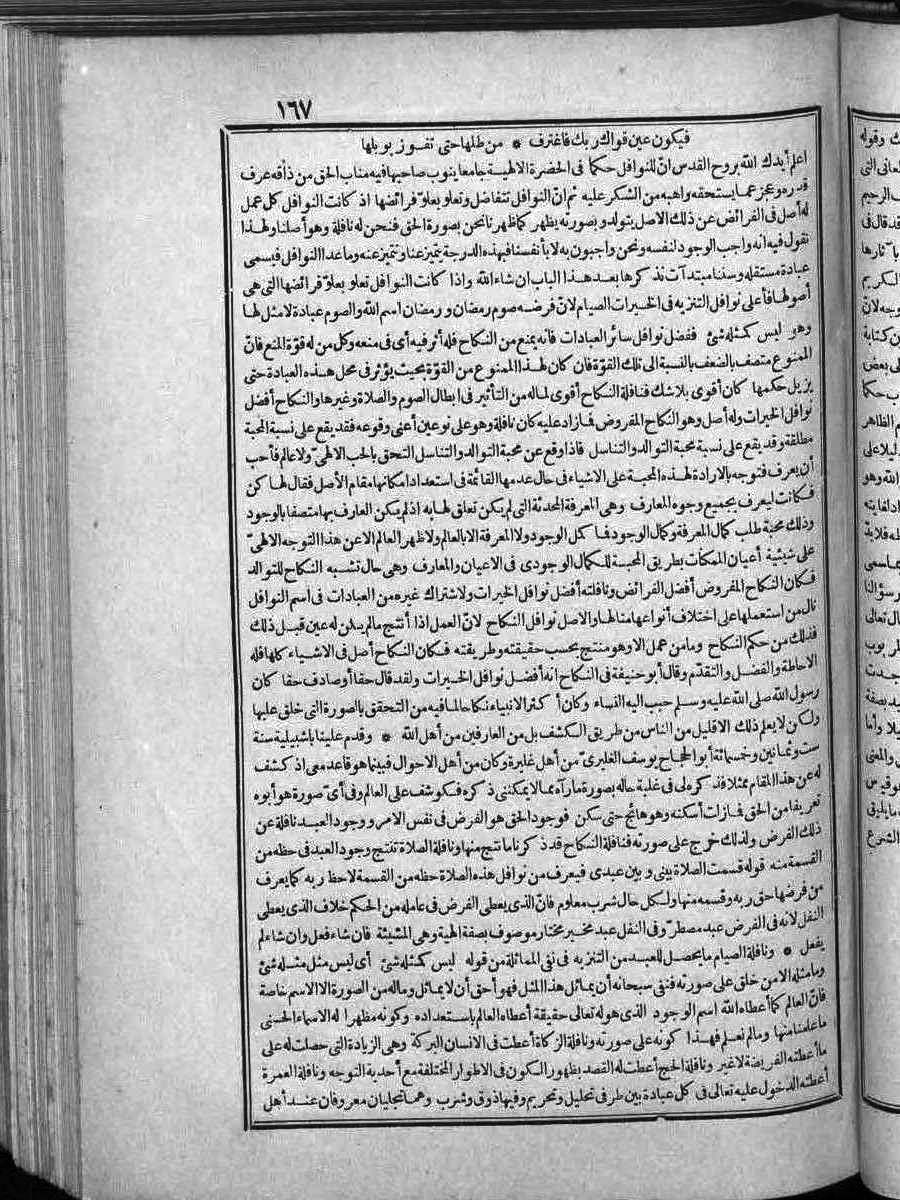 ١٦٧
فيكون عين قواك ربك فاغترف * من طلها حتى تفوز بوبلها
اعلم أيدك الله بروح القدس انّ للنوافل حكما فى الحضرة الالهية جامعا ينوب صاحبها فيه مناب الحق من ذاقه عرف
قدره وعجز عما يستحقه واهبه من الشكر عليه ثم انّ النوافل تتفاضل وتعلو بعلوّ فرائضها اذ كانت النوافل كل عمل
له أصل فى الفرائض عن ذلك الاصل يتولد وبصورته يظهر كما ظهرنا نحن بصورة الحق فنحن له نافلة وهو أصلنا ولهذا
نقول فيه انه واجب الوجود لنفسه ونحن واجبون به لا بأنفسنا فبهذه الدرجة يتميز عنا ونتميز عنه وما عدا النوافل فيسمى
عبادة مستقله وسننا مبتدآت نذكرها بعد هذا الباب ان شاء الله واذا كانت النوافل تعلو بعلوّ فرائضها التى هى
أصولها فأعلى نوافل التنزيه فى الخيرات الصيام لانّ فرضه صوم رمضان ورمضان اسم الله والصوم عبادة لا مثل لها
وهو ليس كمثله شئ ففضل نوافل سائر العبادات فانه يمنع من النكاح فله أثر فيه أى فى منعه وكل من له قوّة المنع فانّ
الممنوع متصف بالضعف بالنسبة الى تلك القوّة فان كان لهذا الممنوع من القوّة بحيث يؤثر فى محل هذه العبادة حتى
يزيل حكمها كان أقوى بلا شك فنافلة النكاح أقوى لماله من التأثير فى ابطال الصوم والصلاة وغيرها والنكاح أفضل
نوافل الخيرات وله أصل وهو النكاح المفروض فما زاد عليه كان نافلة وهو على نوعين أعنى وقوعه فقد يقع على نسبة المحبة
مطلقة وقد يقع على نسبة محبة التوالد والتناسل فاذا وقع عن محبة التوالد والتناسل التحق بالحب الالهىّ ولا عالم فأحب
أن يعرف فتوجه بالارادة لهذه المحبة على الاشياء فى حال عدمها القائمة فى استعداد امكانها مقام الأصل فقال لها كن
فكانت ليعرف بجميع وجوه المعارف وهى المعرفة المحدثة التى لم يكن تعلق لها به اذ لم يكن العارف بها متصفا بالوجود
وذلك محبة طلب كمال المعرفة وكمال الوجود فما كمل الوجود ولا المعرفة الا بالعالم ولا ظهر العالم الا عن هذا التوجه الالهىّ
على شيئية أعيان الممكنات بطريق المحبة للكمال الوجودى فى الاعيان والمعارف وهى حال تشبه النكاح للتوالد
فكان النكاح المفروض أفضل الفرائض ونافلته أفضل نوافل الخيرات ولاشتراك غيره من العبادات فى اسم النوافل
نال من استعملها على اختلاف أنواعها منالها والاصل نوافل النكاح لانّ العمل اذا أنتج ما لم يكن له عين قبل ذلك
فذلك من حكم النكاح وما من عمل الا وهو منتج بحسب حقيقته وطريقته فكان النكاح أصل فى الاشياء كلها فله
الاحاطة والفضل والتقدّم وقال أبو حنيفة فى النكاح انه أفضل نوافل الخيرات ولقد قال حقا أو صادف حقا كان
رسول الله صلى الله عليه وسلم حبب اليه النساء وكان أكثر الانبياء نكاحا لما فيه من التحقق بالصورة التى خلق عليها
ولكن لا يعلم ذلك الا قليل من الناس من طريق الكشف بل من العارفين من أهل الله * وقدم علينا باشبيلية سنة
ست وثمانين وخمسمائة أبو الحجاج يوسف الغليرىّ من أهل غليرة وكان من أهل الاحوال فبينما هو قاعد معى اذ كشف
له عن هذا المقام ممثلا فذكره لى فى غلبة حاله بصورة ما رآه مما لا يمكننى ذكره فكوشف على العالم وفى أىّ صورة هو أبوه
تعريفا من الحق فما زلت أسكنه وهو هائج حتى سكن فوجود الحق هو الفرض فى نفس الامر ووجود العبد نافلة عن
ذلك الفرض ولذلك خرج على صورته فنافلة النكاح قد ذكرنا ما تنتج منها ونافلة الصلاة تنتج وجود العبد فى حظه من
القسمة منه قوله قسمت الصلاة بينى وبين عبدى فيعرف من نوافل هذه الصلاة حظه من القسمة لاحظ ربه كما يعرف
من فرضها حق ربه وقسمه منها ولكل حال شرب معلوم فانّ الذى يعطى الفرض فى عامله من الحكم خلاف الذى يعطى
النفل لانه فى الفرض عبد مضطرّ وفى النفل عبد مخير مختار موصوف بصفة الهية وهى المشيئة فان شاء فعل وان شاء لم
يفعل * ونافلة الصيام ما يحصل للعبد من التنزيه فى نفى المماثلة من قوله ليس كمثله شئ أى ليس مثل مثله شئ
وما مثله الا من خلق على صورته فنفى سبحانه أن يماثل هذا المثل فهو أحق أن لا يماثل وماله من الصورة الا الاسم خاصة
فانّ العالم كما أعطاه الله اسم الوجود الذى هو له تعالى حقيقة أعطاه العالم باستعداده وكونه مظهرا له الاسماء الحسنى
ما علمنا منها وما لم نعلم فهذا كونه على صورته ونافلة الزكاة أعطت فى الانسان البركة وهى الزيادة التى حصلت له على
ما أعطته الفريضة لا غير ونافلة الحج أعطت له القصد بظهور الكون فى الاطوار المختلفة مع أحدية التوجه ونافلة العمرة
أعطته الدخول عليه تعالى فى كل عبادة بين طرفى تحليل وتحريم وفيها ذوق وشرب وهما تجليان معروفان عند أهل